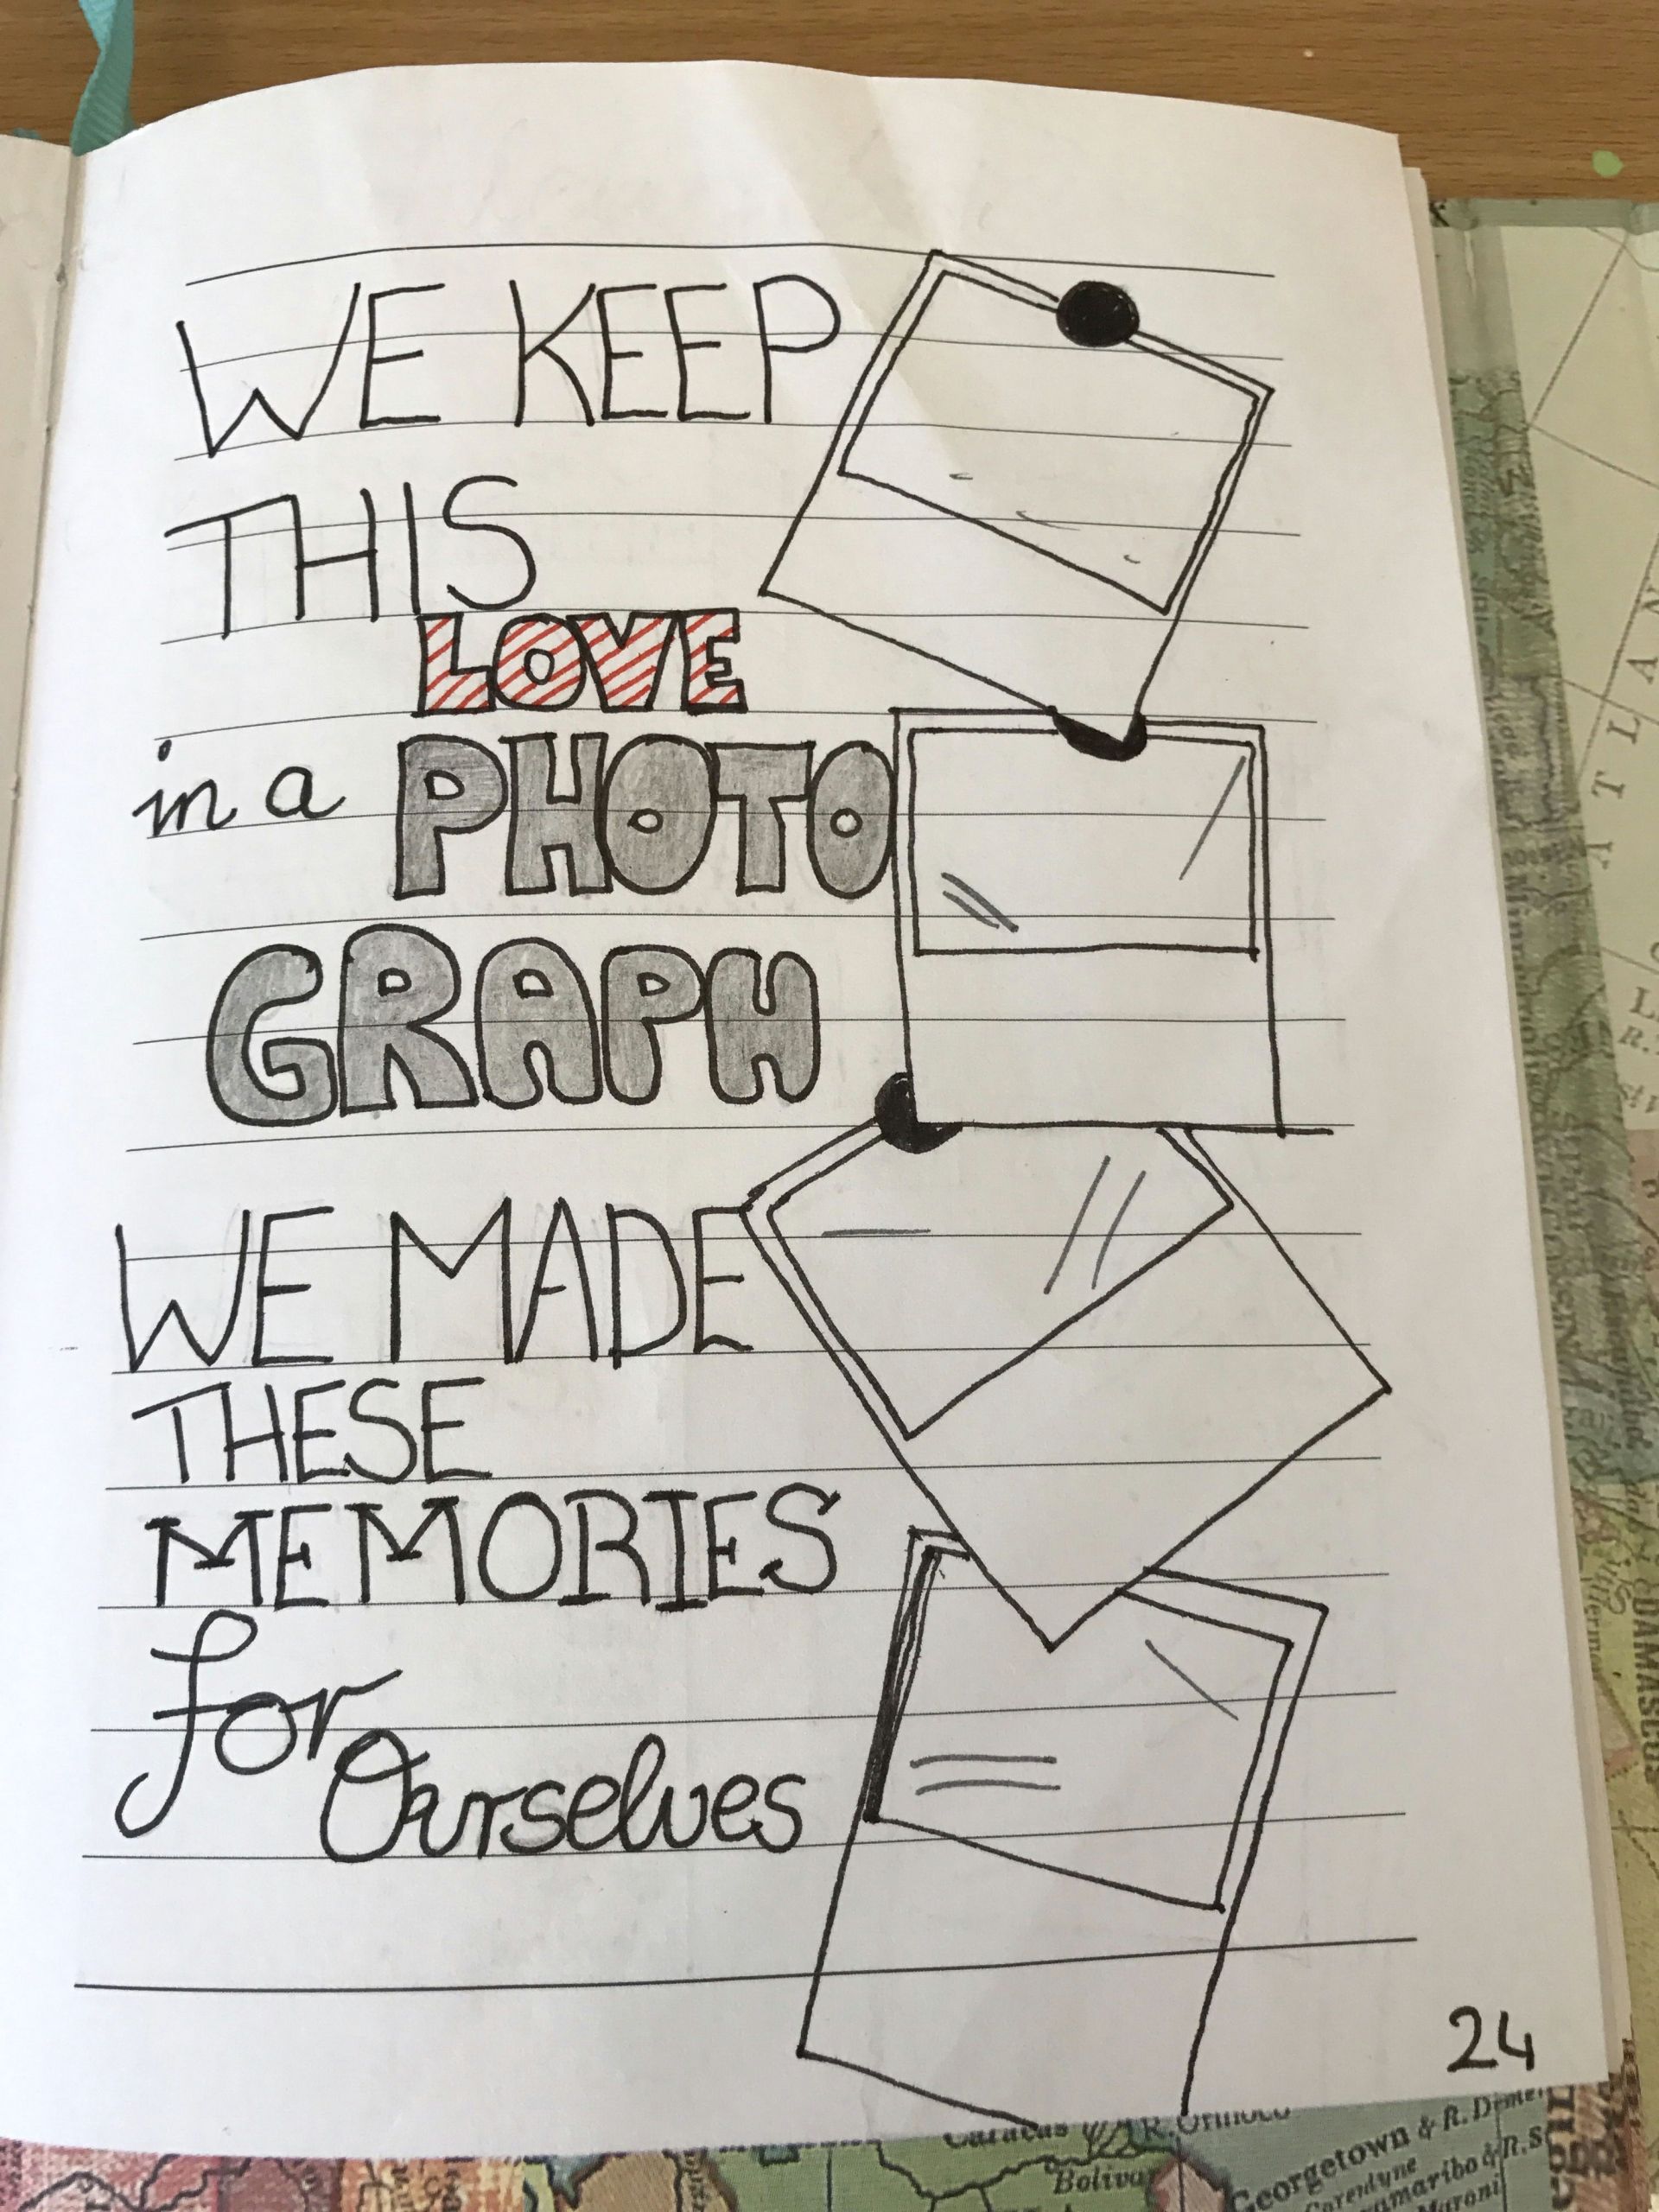 WE KEEP
THIS
LOVE
in a PHOTO
GRAPH
WE MADE
THESE
MEMORIES
for
Ourselves
24
ATLAN
DAMASCUS
Caracas
R. Orinoco
Bolivar
Georgetown & R. Deme
Corendyne
ramaribo & R. S
Maroni